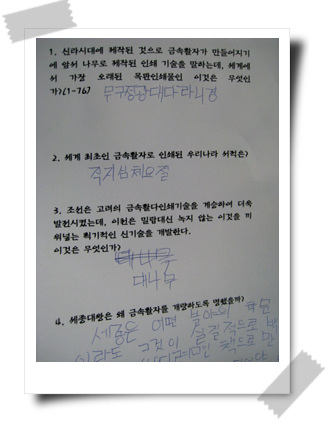 1. 신라시대에 제작된 것으로 금속활자가 만들어지기
에 앞서 나무로 제작된 인쇄 기술을 말하는데, 세계에
서 가장 오래된 목판인쇄물인 이것은 무엇인
가?(1-76)
무구정광대다라니경
2. 세계 최초인 금속활자로 인쇄된 우리나라 서적은?
직지심체요절
3. 조선은 고려의 금속활자인쇄기술을 계승하여 더욱
발전시켰는데, 이천은 밀랍대신 녹지 않는 이것을 끼
워넣는 획기적인 신기술을 개발한다.
이것은 무엇인가?
대나무
대나무
4. 세종대왕은 왜 금속활자를 개량하도록 명했을까?
세종은 어떤 분야의
이라도 그것이 실질적으로
책으로 만